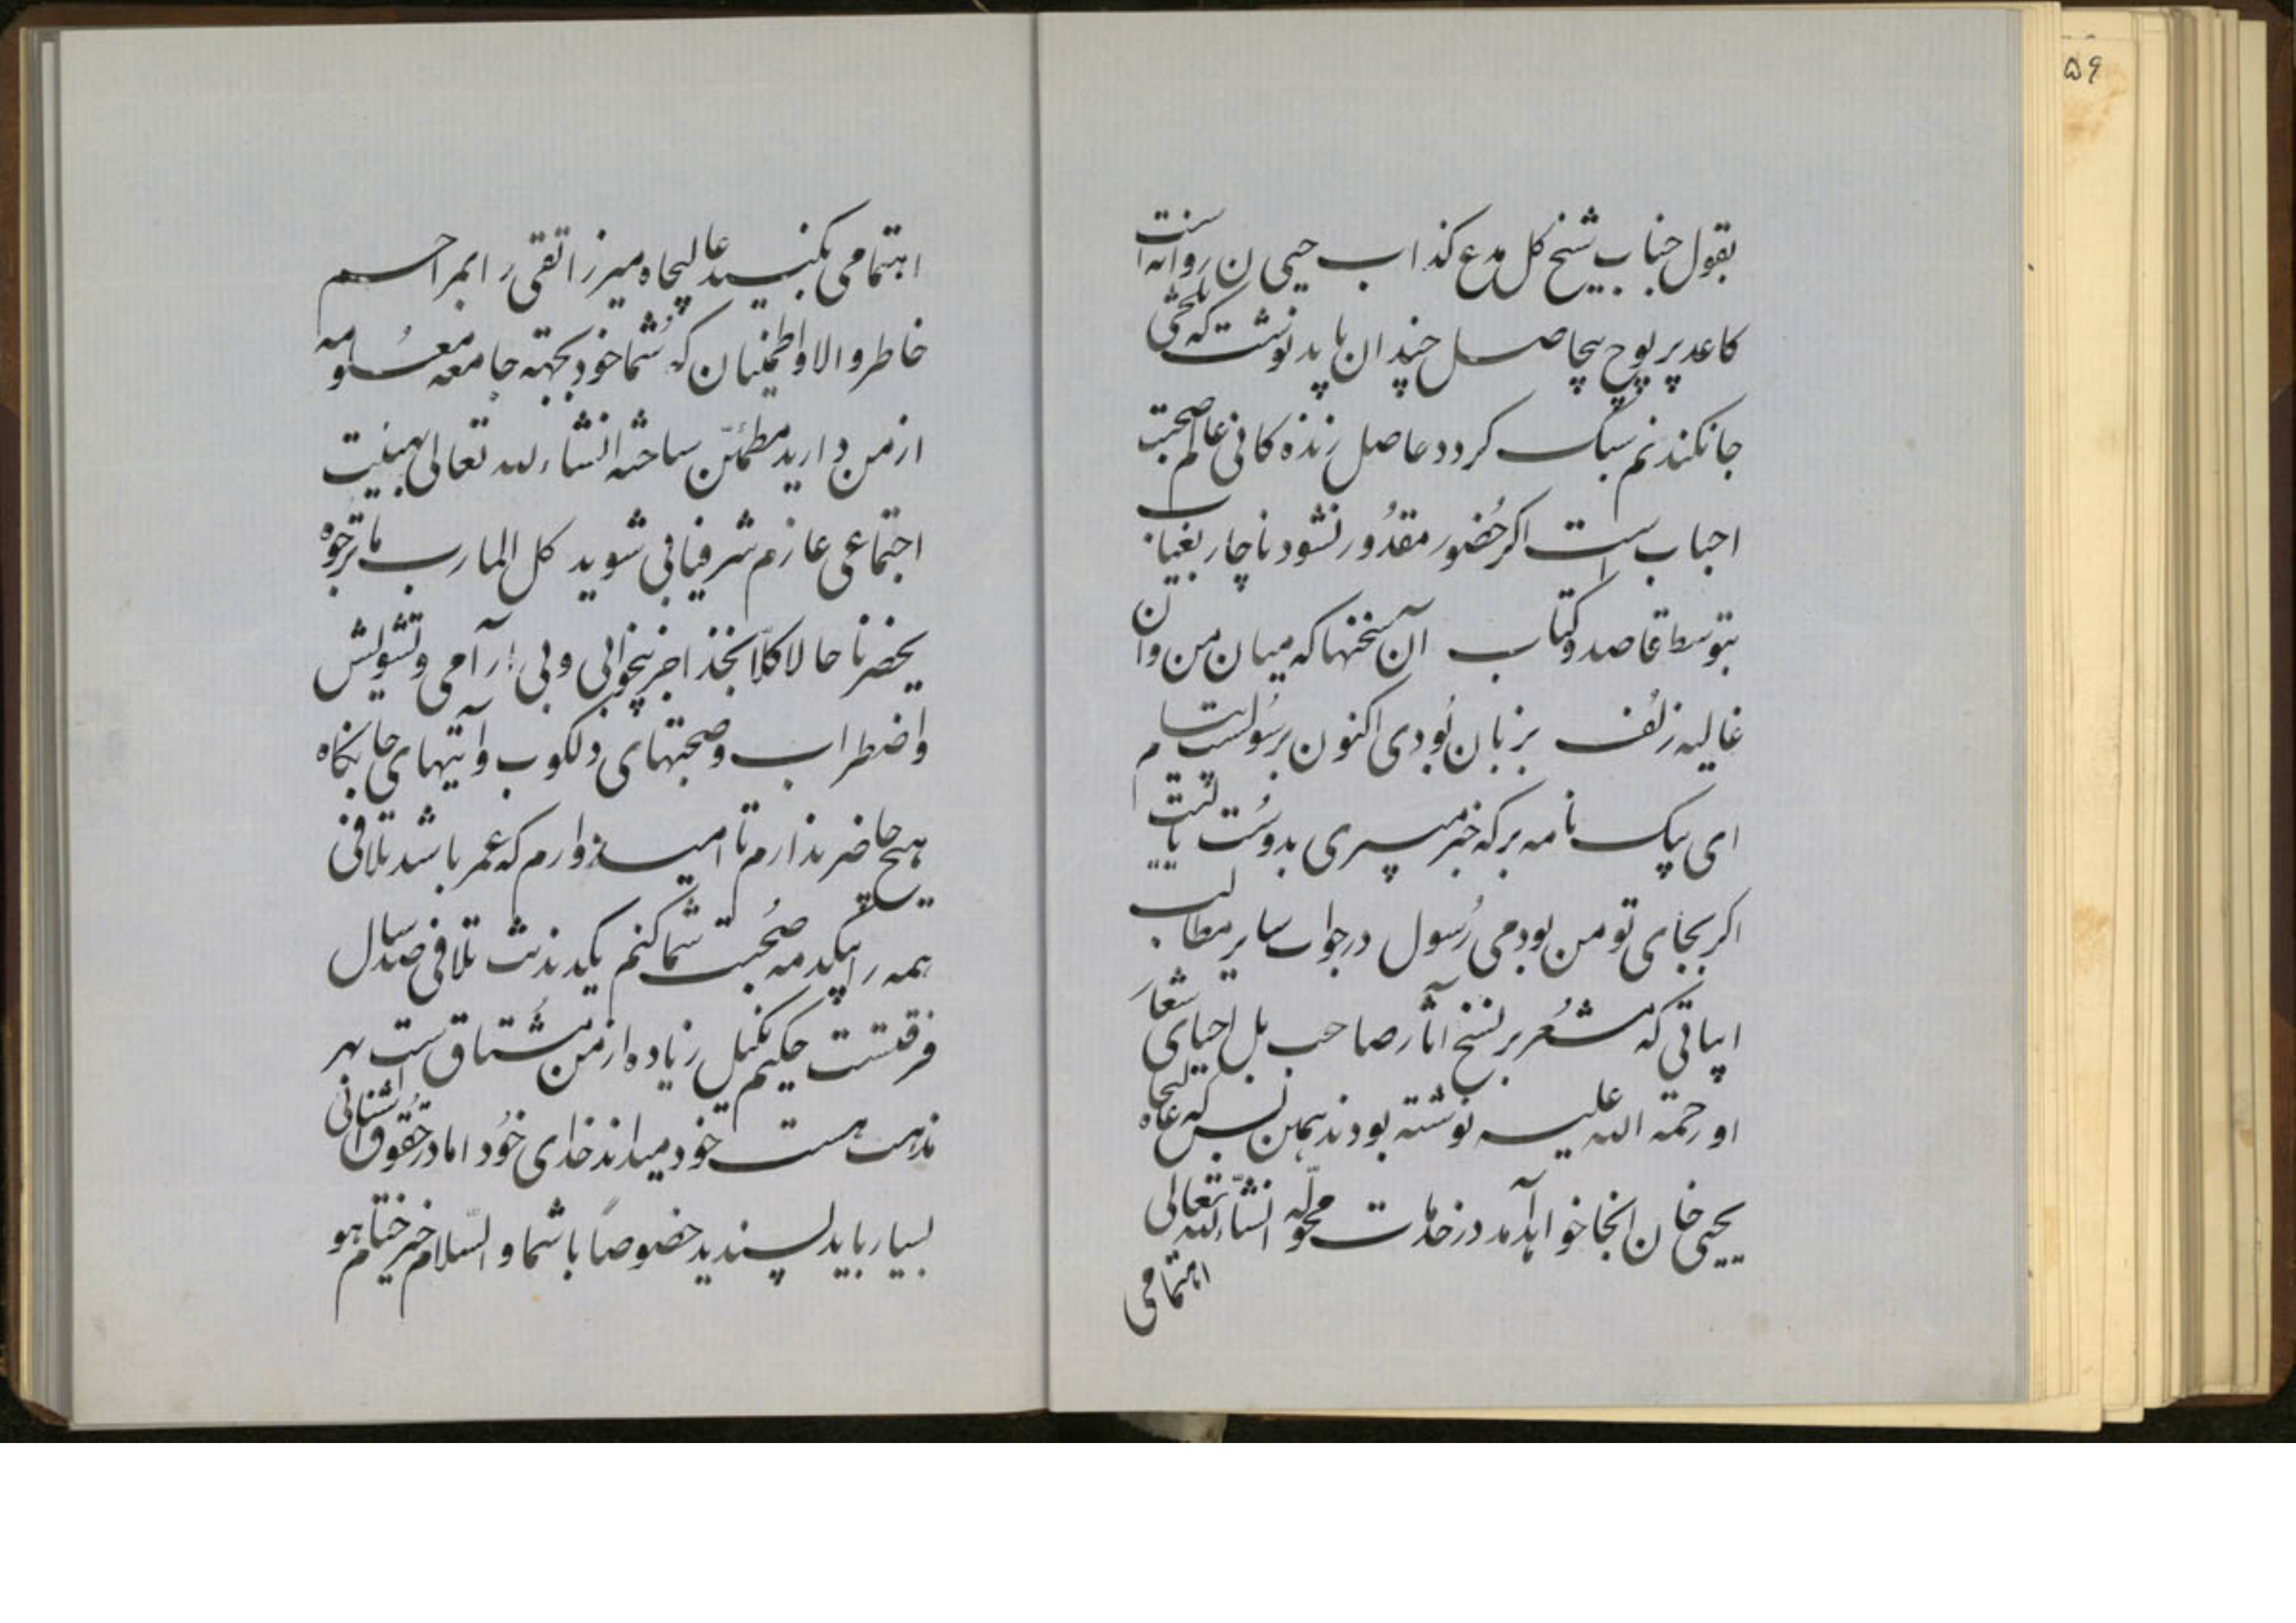 ۵۹
بقول جناب شیخ کل مدع کذاب حیی ن روانه است
کاعد پر پوچ بیحاصل چندان باید نوشت که تلخی
جانکندنم سبک کردد حاصل زنده کانی عالم صحبت
احباب است اکر حُضور مقدُور نشود ناچار بغیاب
بتوسط قاصد وکتاب آن سخنها که میان من وان
غالیه زلُف بزبان بُودی اکنون برسُولست پیام
ای پیک نامه بر که خبر میبری بدوست یالیت
اکر بجای تو من بودمی رُسول در جواب سایر مطالب
ابیاتی که مشعُر بر نسخ آثار صاحب بل احیای شعار
او رحمة الله علیه نوشته بودند همین بس که عالیجاه
یحیی خان انجا خواهد آمد در خدمات محوّله انشاءالله تعالی
اهتمامی
اهتمامی بکنید عالیجاه میرزا تقی را بمراحم
خاطر والا واطمینان که شما خود بجهته جامعه معلُومه
از من دارید مطمئن ساخته انشاءالله تعالی بهیئت
اجتماعی عازم شرفیابی شوید کل المارب ما ترجوه
یحضرنا حالا کلاً بخذ اجز بیخوابی و بی ارآمی وتشویش
واضطراب وصحبتهای دلکوب وآیتهای جانکاه
هیچ حاضر ندارم تا امیدوارم که عمر باشد تلافی
همه را بیکدمه صُحبت شما کنم یکدمه نشد تلافی صد سال
فرقتست حکیم نکبل زیاده از من مشتاق است بهر
مذهب هست خود میداند خدای خُود اما در حقُوق اشنائی
بسیار باید پسندید خصوصاً با شما والسّلام خیر ختام هو